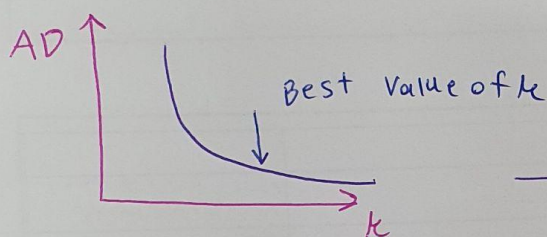 AD
Best Value of k
k